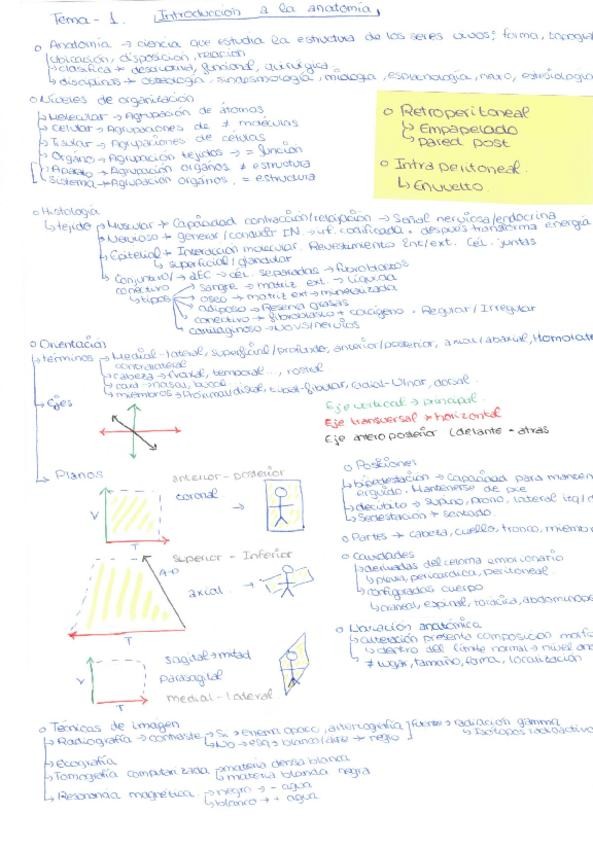 Tema - 1. Introducción a la anatomía
o Anatomía → ciencia que estudia la estructura de los seres vivos; forma, topogra
ubicación, disposición, relación
clasifica → descriptiva, funcional, quirúrgica
disciplinas → osteología, sindesmología, miología, esplacnología, neuro, estesiología
o Niveles de organización
Molecular → Agrupación de átomos
Celular → Agrupaciones de ≠ moléculas
Tisular → Agrupaciones de células
Órgano → Agrupación tejidos → = función
Aparato → Agrupación órganos ≠ estructura
Sistema → Agrupación órganos, = estructura
o Retroperitoneal
Empapelado
pared post
o Intraperitoneal.
Envuelto.
o Histología
tejido
Muscular → Capacidad contracción/relajación → Señal nerviosa/endocrina
Nervioso → generar/conducir IN → inf. codificada. después transforma energía
Epitelial → Interacción molecular. Revestimiento Int/ext. Cél. juntas
superficial/glandular
Conjuntivo/conectivo → cél. separadas → fibroblastos
tipos
sangre → matriz ext. → líquida
óseo → matriz ext → mineralizada
adiposo → Reserva grasas
conectivo → fibroblasto + colágeno. Regular/Irregular
cartilaginoso → No vs/nervios
o Orientación
términos
Medial-lateral, superficial/profundo, anterior/posterior, axial/abaxial, Homolate
contralateral
cabeza → frontal, temporal..., rostral
cara → nasal, bucal
miembros → Proximal/distal, tibial-fibular, radial-Ulnar, dorsal.
Ejes
Eje vertical → principal.
Eje transversal → horizontal
Eje anteroposterior (delante - atrás
Planos
anterior - posterior
coronal
V
T
superior - Inferior
A-P
axial
T
sagital → mitad
Parasagital
medial - lateral
V
T
o Posiciones
bipedestación → Capacidad para mantener
erguido. Mantenerse de pie
decúbito → supino, prono, lateral izq/d
Sedestación → sentado
o Partes → cabeza, cuello, tronco, miembr
o Cavidades
derivadas del celoma embrionario
pleura, pericárdica, peritoneal.
configuradas cuerpo
craneal, espinal, torácica, abdominope
o Variación anatómica
alteración presenta composición morfo
dentro del límite normal → nivel ana
≠ lugar, tamaño, forma, localización
o Técnicas de imagen
Radiografía → contraste
Si → enema opaco, arteriografía
No → esq → blanco/aire → negro
fuentes → radiación gamma
Isótopos radioactivo
Ecografía
Tomografía computarizada
materia densa blanca
materia blanda negra
Resonancia magnética
negro → - agua
blanco → + agua